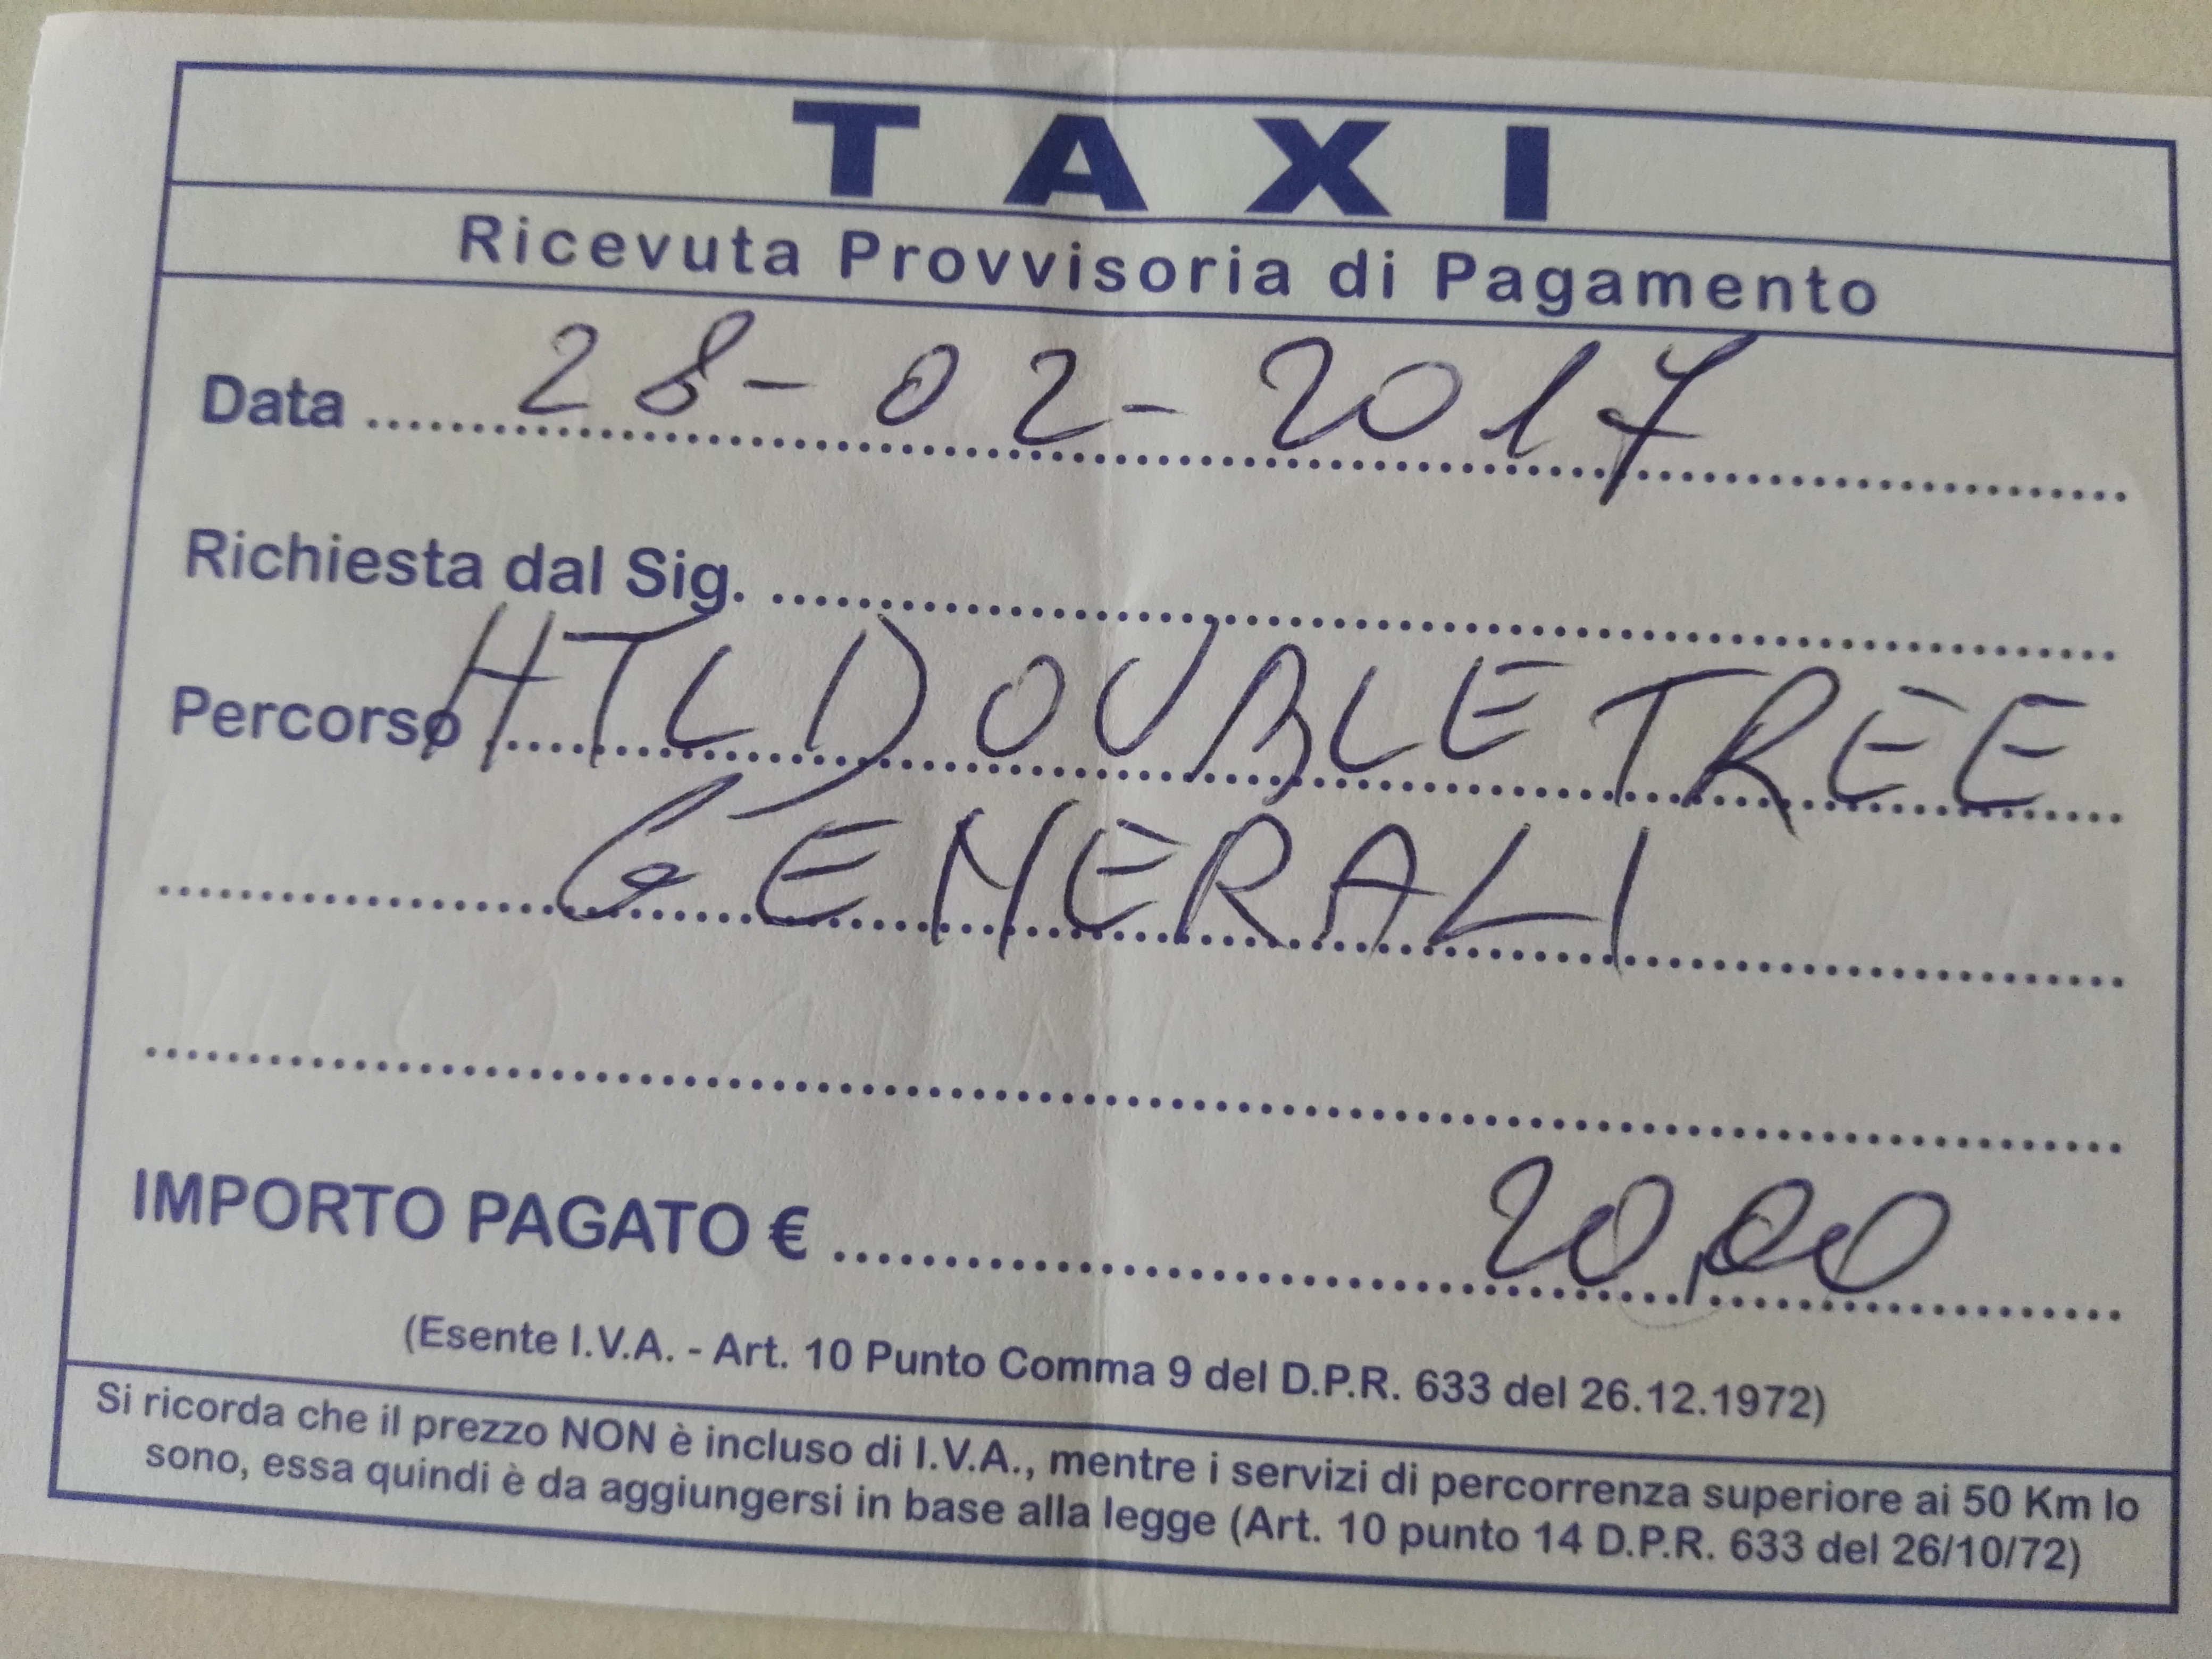 TAXI
Ricevuta Provvisoria di Pagamento
Data 28-02-2017
Richiesta dal Sig.
Percorso HTL DOUBLE TREE
GENERALI
IMPORTO PAGATO € 20,00
(Esente I.V.A. - Art. 10 Punto Comma 9 del D.P.R. 633 del 26.12.1972)
Si ricorda che il prezzo NON è incluso di I.V.A., mentre i servizi di percorrenza superiore ai 50 Km lo
sono, essa quindi è da aggiungersi in base alla legge (Art. 10 punto 14 D.P.R. 633 del 26/10/72)